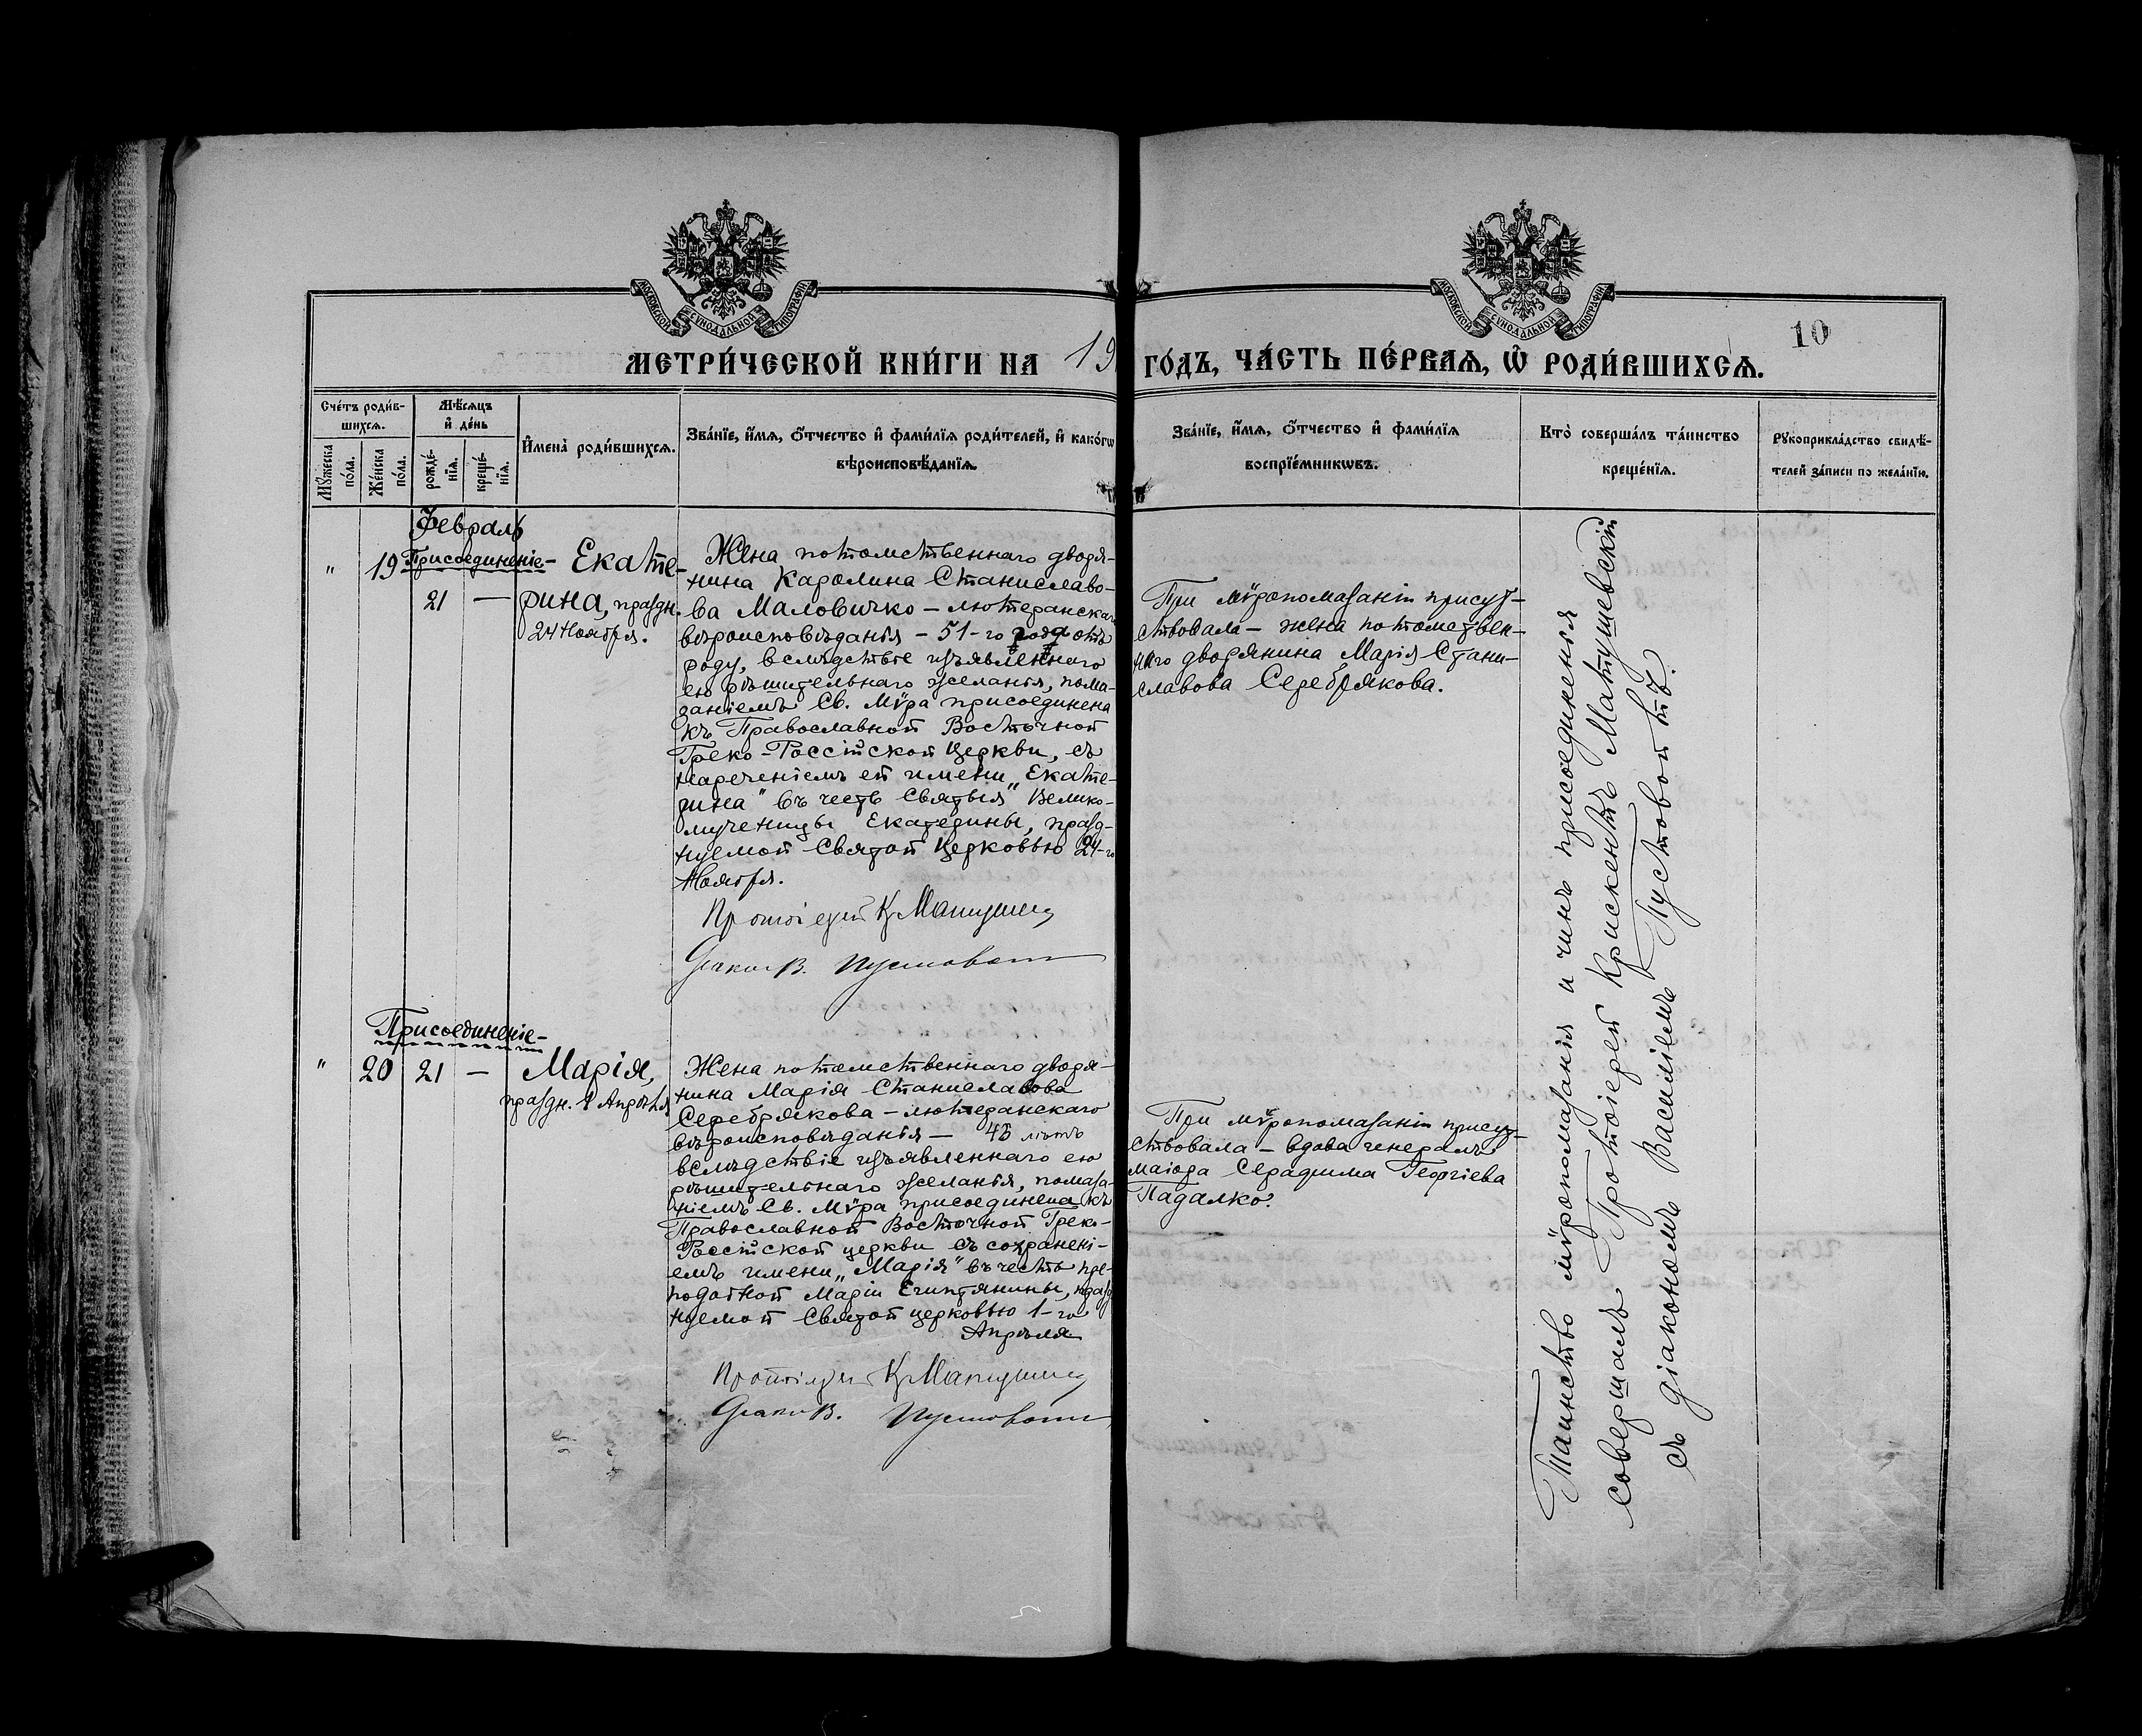 МОСКОВСКОЙ СѴНОДАЛЬНОЙ ТИПОГРАФІИ
МОСКОВСКОЙ СѴНОДАЛЬНОЙ ТИПОГРАФІИ
10
МЕТРИ́ЧЕСКОЙ КНИ́ГИ НА 19 ГО́ДЪ, ЧА́СТЬ ПЕ́РВАЯ, Ѡ҆ РОДИ́ВШИХСЯ.
Сче́тъ роди́в-
шихся.
Мѹ́жеска по́ла.
Же́нска по́ла.
Мѣ́сяцъ
и҆ де́нь
рожде́-
нїя.
креще́-
нїя.
И҆мена̀ роди́вшихся.
Зва́нїе, и҆́мя, ѻ҆́тчество и҆ фами́лїя роди́телей, и҆ како́гѡ
вѣроисповѣ́данїя.
Зва́нїе, и҆́мя, ѻ҆́тчество и҆ фами́лїя
воспрїе́мникѡвъ.
Кто̀ соверша́лъ та́инство
креще́нїя.
Рѹкоприкла́дство свидѣ́-
телей за́писи по жела́нїю.
Февраль
Присоединеніе-
" 19 21 —
Екате-
рина, праздн.
24 Ноября.
Жена потомственнаго дворя-
нина Каролина Станиславо-
ва Маловичко – лютеранскаго
вѣроисповѣданія – 51-го года отъ
роду, вслѣдствіе изъявленнаго
ею рѣшительнаго желанія, пома-
заніемъ Св. Мѵра присоединена
къ Православной Восточной
Греко-Россійской Церкви, съ
нареченіемъ ей имени „Екате-
рина" въ честь Святыя Велико-
мученицы Екатерины, празд-
нуемой Святой Церковью 24-го
Ноября.
Протоіерей К Матушев
Діакон В. Пустовойт
При мѵропомазаніи присут-
ствовала – жена потомствен-
наго дворянина Марія Стани-
славова Серебрякова.
Присоединеніе-
" 20 21 —
Марія,
праздн. 1 Апрѣля
Жена потомственнаго дворя-
нина Марія Станиславова
Серебрякова – лютеранскаго
вѣроисповѣданія – лѣтъ
вслѣдствіе изъявленнаго ею
рѣшительнаго желанія, помаза-
ніемъ Св. Мѵра присоединена къ
Православной Восточной Греко-
Россійской церкви съ сохранені-
емъ имени „Марія" въ честь пре-
подобной Маріи Египтянины, празд
нуемой Святой церковью 1-го
Апрѣля
Протоіерей К Матушев
Діакон В. Пустовойт
При мѵропомазаніи присут-
ствовала – вдова генералъ
маіора Серафима Георгіева
Падалко.
Таинство мѵропомазанія и чинъ присоединенія
совершалъ Протоіерей Крискентъ Матушевскій
съ діакономъ Василіемъ Пустовойтъ.